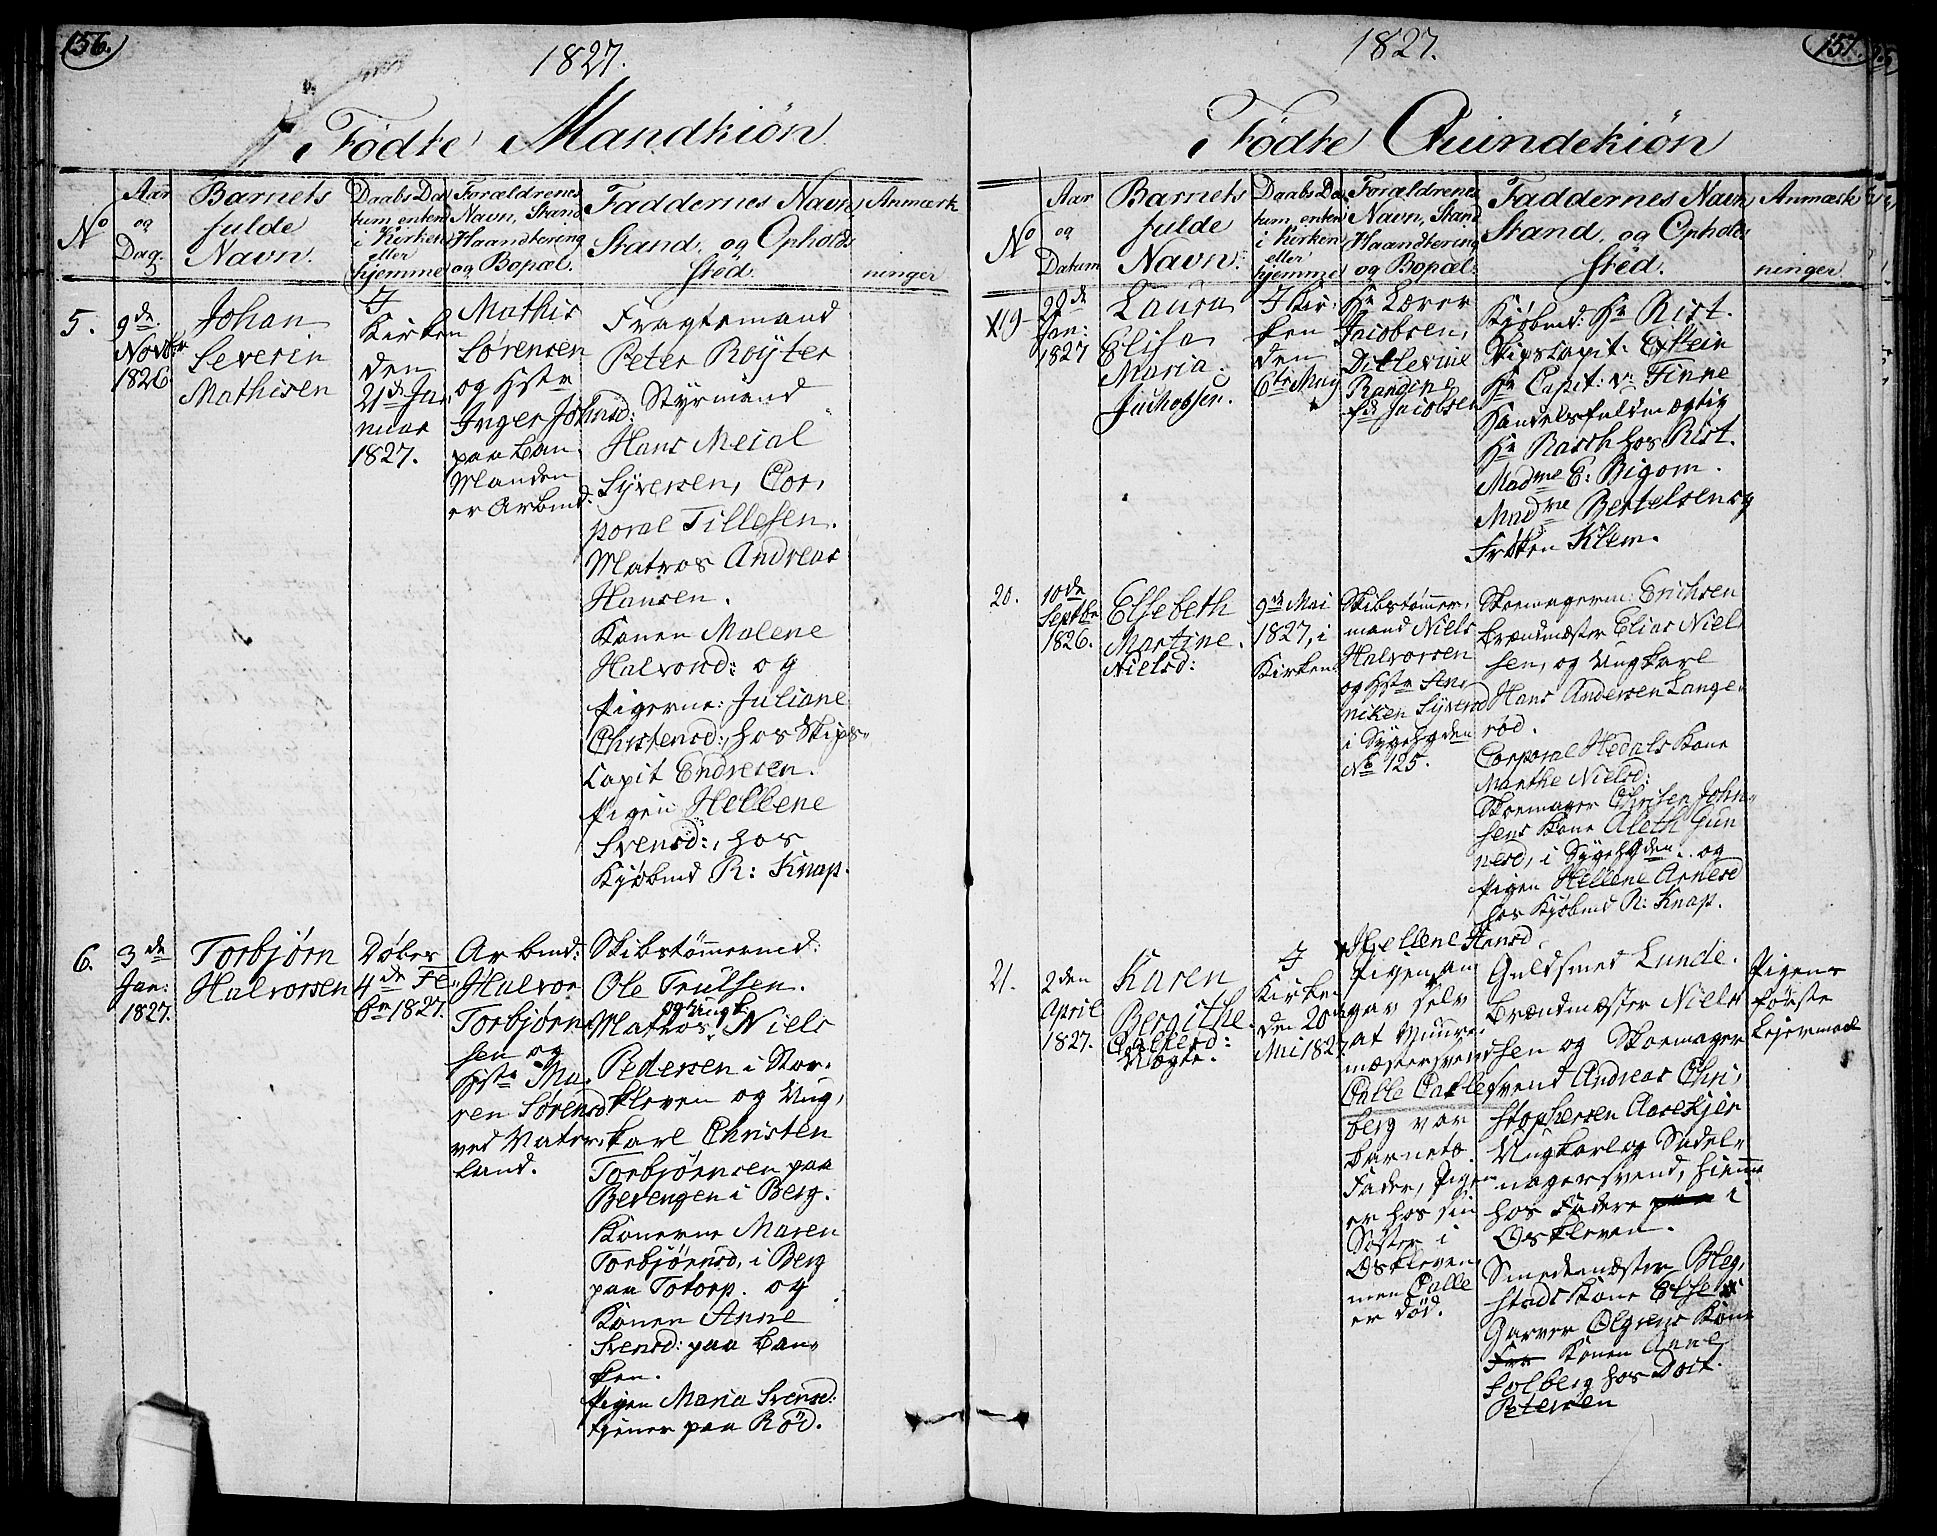 156.
1827.
Födte Mandkiön
No
Aar
og
Dag.
Barnets
fulde
Navn.
Daabs Da
tum, enten
i Kirken
eller
hjemme
Forældrenes
Navn, Stand
Haandtering
og Bopæl.
Faddernes Navn
Stand, og Opholds
stèd.
Anmærk
ninger
5.
9de
Novbr
1826
Johan
Severin
Mathisen
I
Kirken
den
21de Ja,
nuar
1827.
Mathis
Sørensen
og Hstr
Inger Johnsd:
paa Ban,
Manden
er Arbmd.
Fragtemand
Peter Röyter
Styrmand
Hans Meial
Syversen, Cor,
poral Tillefsen.
Matros Andreas
Hansen.
Konen Malene
Halvorsd: og
Pigerne: Juliane
Christensd:, hos Skips,
Capit Endresen.
Pigen Hellene
Svensd:, hos
Kjøbmd R: Knap.
6.
3de
Jan:
1827.
Torbjørn
Halvorsen
Døbes
4de Fe,
br 1827.
Arbmd:
Halvor
Torbjørn,
sen og
Hstr Ma,
ren Sørensd
ved Vater,
land.
Skibstömmermd:
Ole Trulsen.
og Ungk:
Matros, Niels
Pedersen i Stor,
kleven og Ung,
karl Christen
Torbjørnsen paa
Bevengen i Berg.
Konerne Maren
Torbjørnsd, i Berg
paa Totorp. og
Konen Anne
Svensd: paa Ban,
ken.
Pigen Maria Svensd:
tjener paa Röd.
157.
1827.
Födte Quindekiön
No
Aar
og
Datum
Barnets
fulde
Navn.
Daabs Da
tum, enten
i Kirken
eller
hjemme
Forældrenes
Navn, Stand
Haandtering
og Bopæl.
Faddernes Navn
Stand, og Opholds
stèd.
Anmærk
ninger
19
29de
Jan:
1827
Laura
Elisa
Maria
Jachobsen.
I Kir,
ken
den
6te May
Hr Lærer
Jacobsen,
Ditlevine
Randine
fd Jacobsen
Kjøbmd: Hr Rist.
Skips Capit: Exstein
Hr Capit: v: Finne
Handelsfuldmægtig
Hr Rasch hos Rist.
Madme E: Bigom.
Madme Bertelsen og
Frøken Klem.
20.
10de
Septbr
1826.
Elsebeth
Martine
Nielsd:
9de Mai
1827, i
Kirken
Skibstömmer,
mand Niels
Halvorsen
og Hstr Än,
niken Syversd
i Sygehgden
No 125.
Skoemagerm: Erichsen
Brandmester Elias Niel
sen, og Ungkarl
Hans Andersen Lange,
röd.
Corporal Hedals Kone
Marthe Nielsd:
Skoemager Christen John,
sens Kone Aleth Gun
nersd, i Sygehgden. og
Pigen Hellene Arnesd
hos Kjøbmd R: Knap.
21.
2den
April
1827.
Karen
Bergithe
Callesd:
Uægte.
I
Kirken
den 20de
Mai 1827
Hellene Hansd.
Pigen an
gav selv
at Muur,
mestersvend
Calle Calles
berg var
Barnets
Fader, Pigen
er hos sin
Søster i
Oskleven,
men Calle
er död.
Guldsmed Lunde.
Brandmester Niels
sen og Skoemager
svend Andreas Chri,
stophersen Aaseskjer
Ungkarl og Sadel,
magersvend, hiemme
hos Fadere paa i
Oskleven.
Smedemester Bleg,
stads Kone Else
Garver Olgrens Kone
Fra Konen Anne
Solberg hos Doct.
Petersen
Pigens
første
Leiermaal